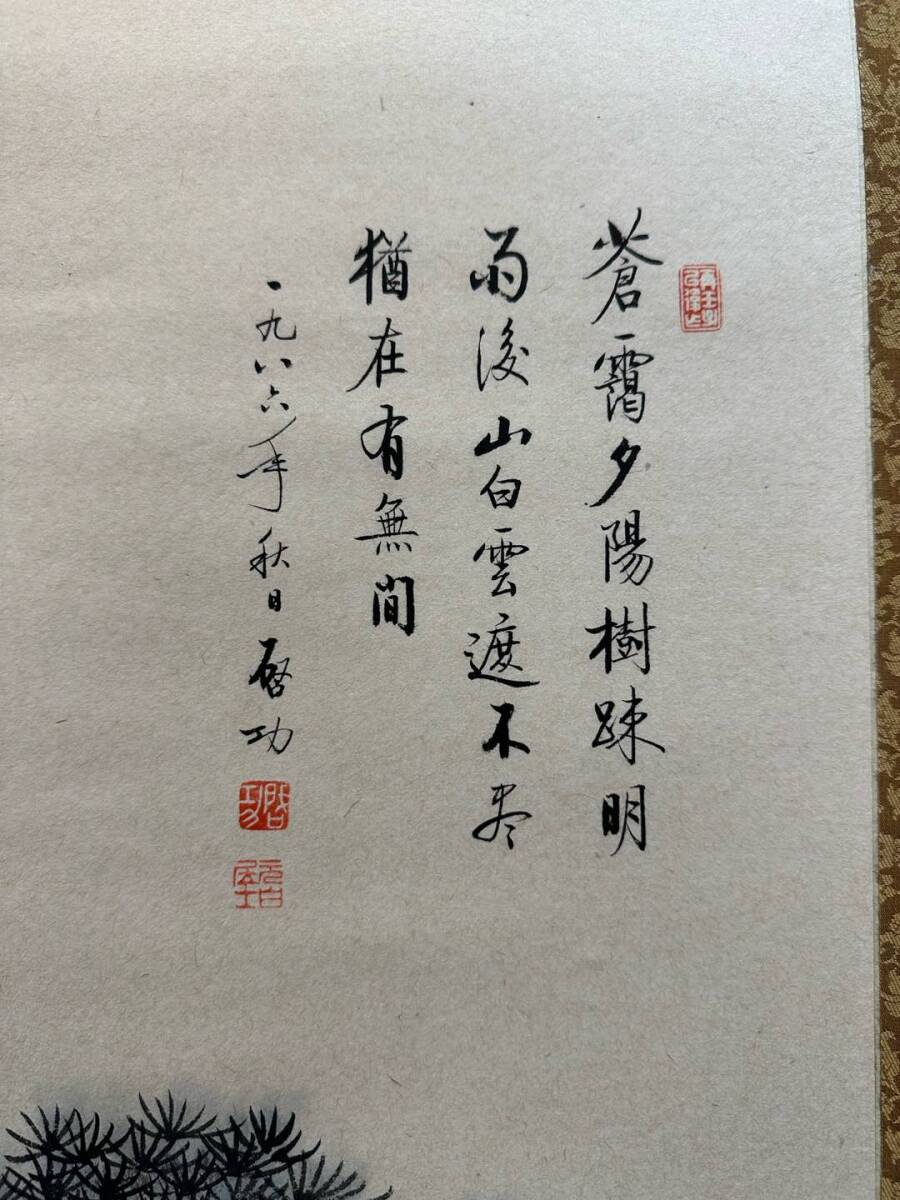 蒼靄夕陽樹踈明
雨後山白雲遮不尽
猶在有無間
一九八六年秋日啓功
啓功
元白